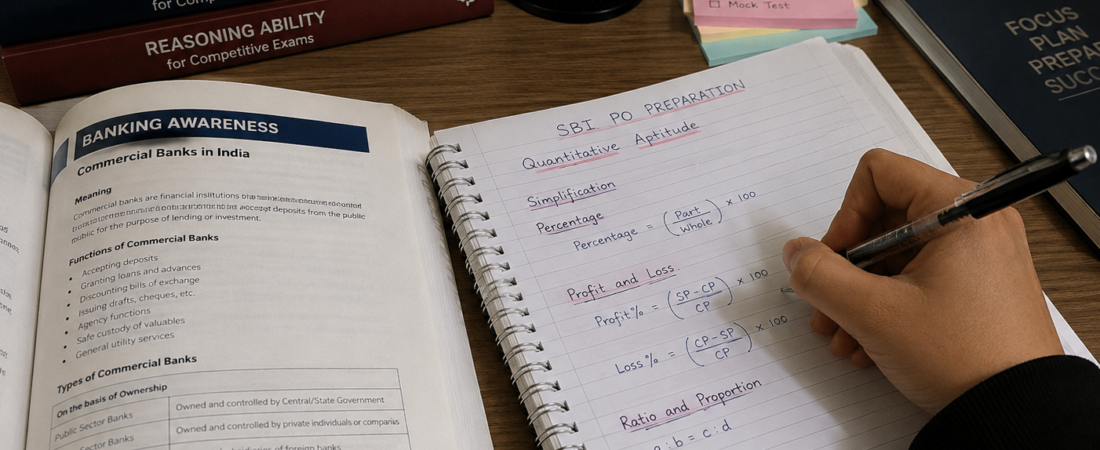 for Comp
REASONING ABILITY
for Competitive Exams
Mock Test
FOCUS
PLAN
PREPAR
SUCC
BANKING AWARENESS
Commercial Banks in India
Meaning
Commercial banks are financial institutions
accept deposits from the public
public for the purpose of lending or investment.
Functions of Commercial Banks
• Accepting deposits
• Granting loans and advances
• Discounting bills of exchange
• Issuing drafts, cheques, etc.
• Agency functions
• Safe custody of valuables
• General utility services
Types of Commercial Banks
On the basis of Ownership
Public Sector Banks Owned and controlled by Central/State Government
Sector Banks Owned and controlled by private individuals or companies
of foreign banks
SBI PO PREPARATION
Quantitative Aptitude
Simplification
Percentage
Percentage = (Part/Whole) × 100
Profit and Loss
Profit% = (SP-CP/CP) × 100
Loss% = (CP-SP/CP) × 100
Ratio and Proportion
a : b = c : d